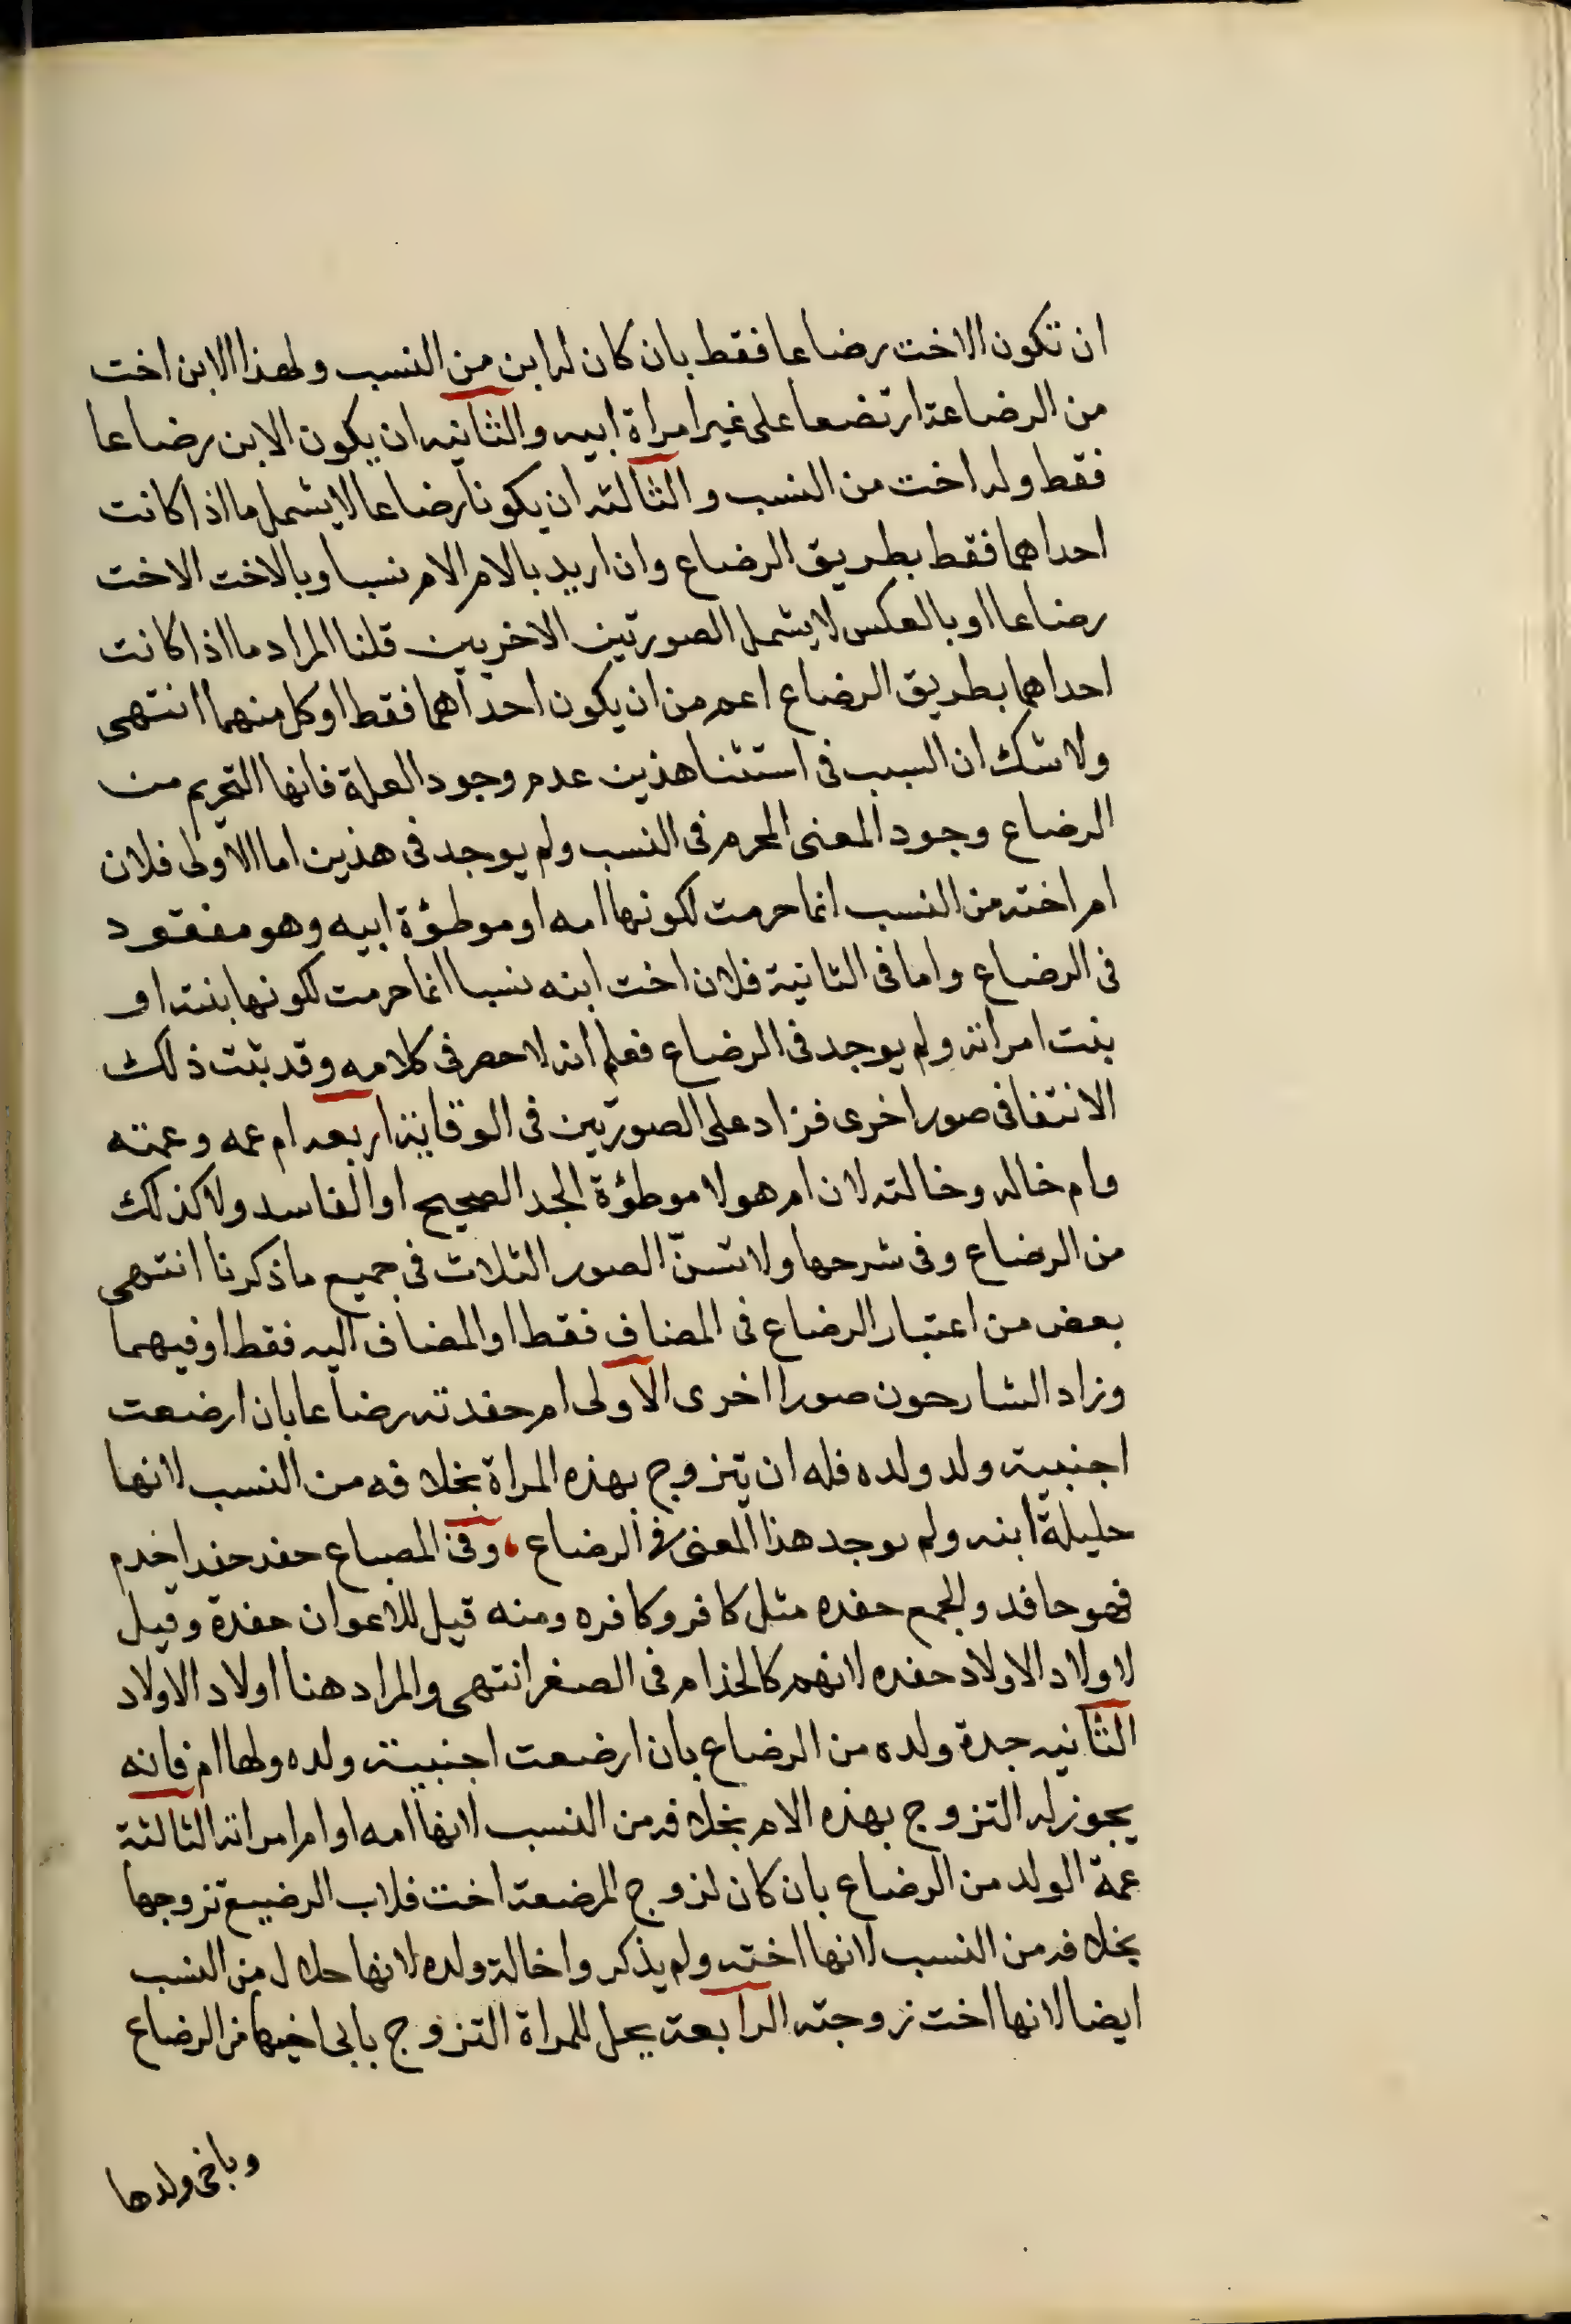 ان تكون الاخت رضاعا فقط بان كان له ابن من النسب ولهذا الابن اخت
من الرضاعة ارتضعا على غير امراة ابيه والثانيه ان يكون الابن رضاعا
فقط وله اخت من النسب والثالثه ان يكونا رضاعا لا يشمل ما اذا كانت
احداهما فقط بطريق الرضاع وان اريد بالام الام نسبا وبالاخت الاخت
رضاعا او بالعكس لا يشمل الصورتين الاخريين قلنا المراد ما اذا كانت
احداهما بطريق الرضاع اعم من ان يكون احداهما فقط او كل منهما انتهى
ولا شك ان السبب فى استثنا هذين عدم وجود العلة فانها التحريم من
الرضاع وجود المعنى المحرم فى النسب ولم يوجد فى هذين اما الاولى فلان
ام اخته من النسب انما حرمت لكونها امه او موطؤة ابيه وهو مفقود
فى الرضاع واما فى الثانية فلان اخت ابنه نسبا انما حرمت لكونها بنته او
بنت امراته ولم يوجد فى الرضاع فعلم انه لا حصر فى كلامه وقد ثبت ذلك
الانتفا فى صور اخرى فزاد على الصورتين فى الوقاية اربعه ام عمه وعمته
وام خاله وخالته لان ام هولا موطؤة الجد الصحيح او الفاسد ولا كذلك
من الرضاع وفى شرحها ولا تنسّ الصور الثلاث فى جميع ما ذكرنا انتهى
بعض من اعتبار الرضاع فى المضاف فقط او المضاف اليه فقط او فيهما
وزاد الشارحون صورا اخرى الاولى ام حفدته رضاعا بان ارضعت
اجنبية ولد ولده فله ان يتزوج بهذه المراة بخلافه من النسب لانها
حليلة ابنه ولم يوجد هذا المعنى فى الرضاع، وفى المصباع حفد حفدا خدم
فهو حافد والجمع حفده مثل كافر وكافره ومنه قيل للاعوان حفدة وقيل
لاولاد الاولاد حفده لانهم كالخدام فى الصغر انتهى والمراد هنا اولاد الاولاد
الثانيه جدة ولده من الرضاع بان ارضعت اجنبية ولده ولها ام فانه
يجوز له التزوج بهذه الام بخلافه من النسب لانها امه او ام امراته الثالثة
عمة الولد من الرضاع بان كان لزوج المرضعة اخت فلاب الرضيع تزوجها
بخلافه من النسب لانها اخته ولم يذكروا خالة ولده لانها حلال من النسب
ايضا لانها اخت زوجته الرابعة يحل للمراة التزوج بابى اخيها من الرضاع
وباخى ولدها